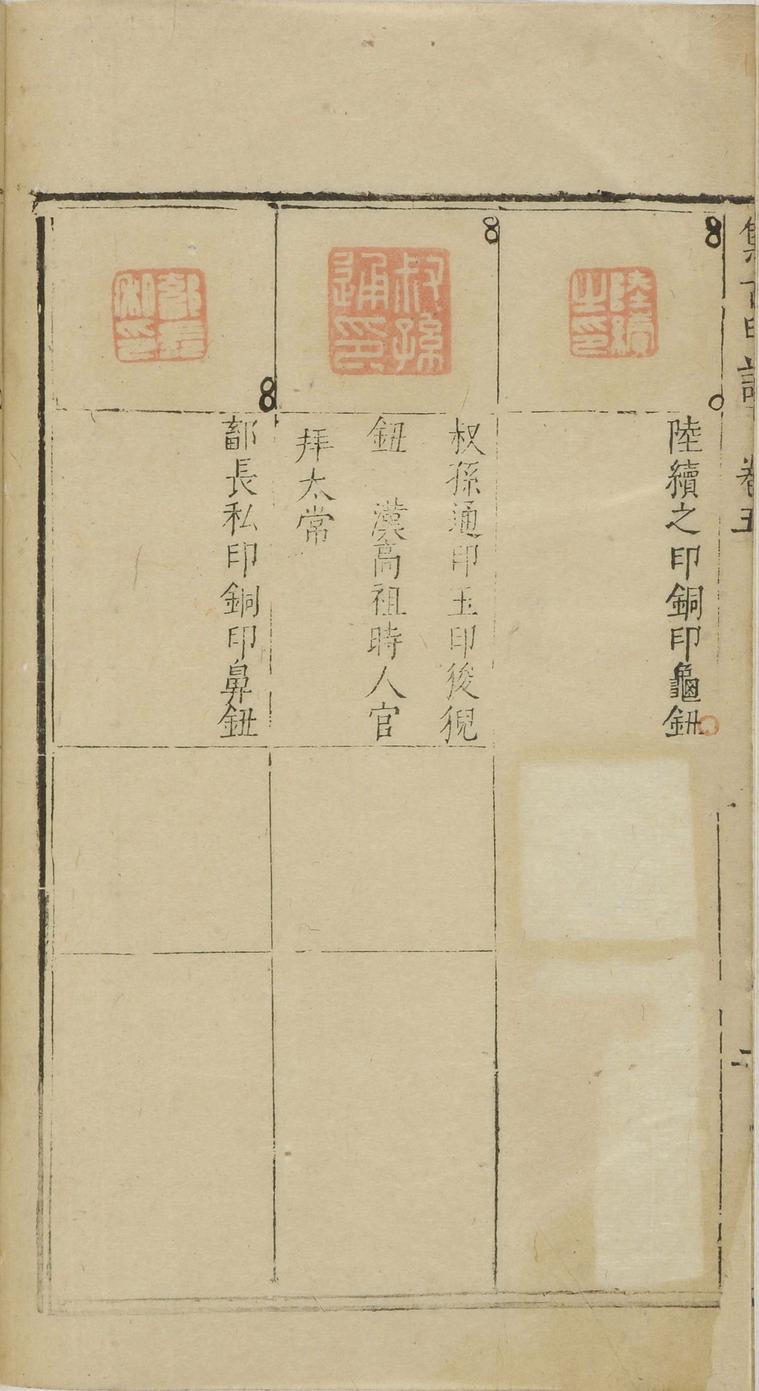 集古印譜 卷五
二
陸續之印
陸續之印銅印龜鈕
叔孫通印
叔孫通印玉印後猊
鈕 漢高祖時人官
拜太常
鄐長私印
鄐長私印銅印鼻鈕